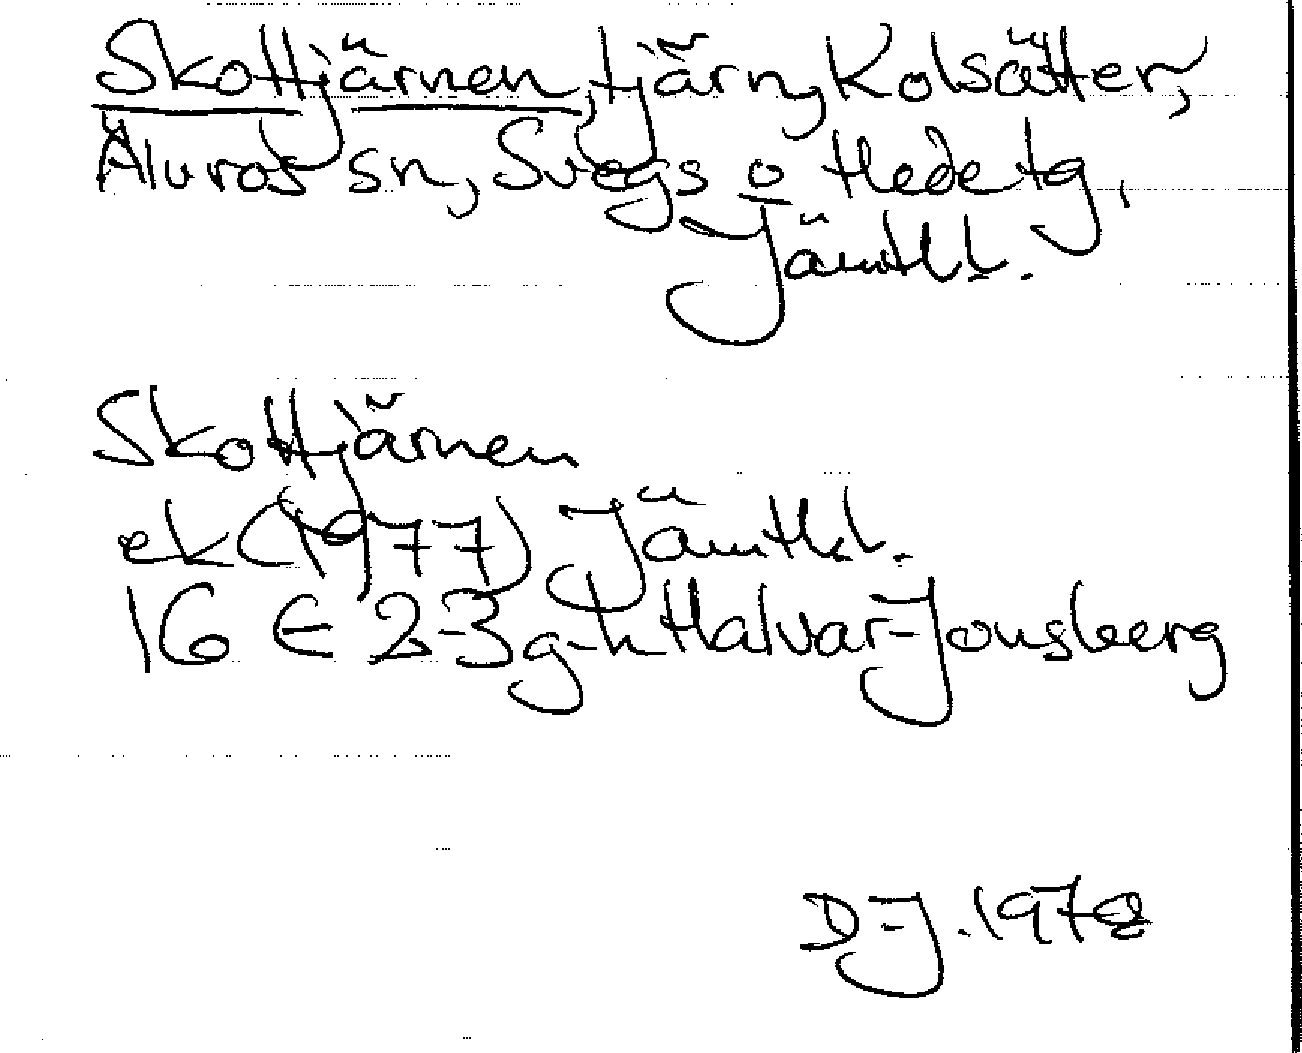 Skottjärnen, tjärn, Kolsätter,
Älvros sn, Svegs o Hede tg,
Jämtl.
Skottjärnen
ek (1977) Jämtl.
16 E 2-3 g-h Halvar-Jonsberg
D-J. 1978